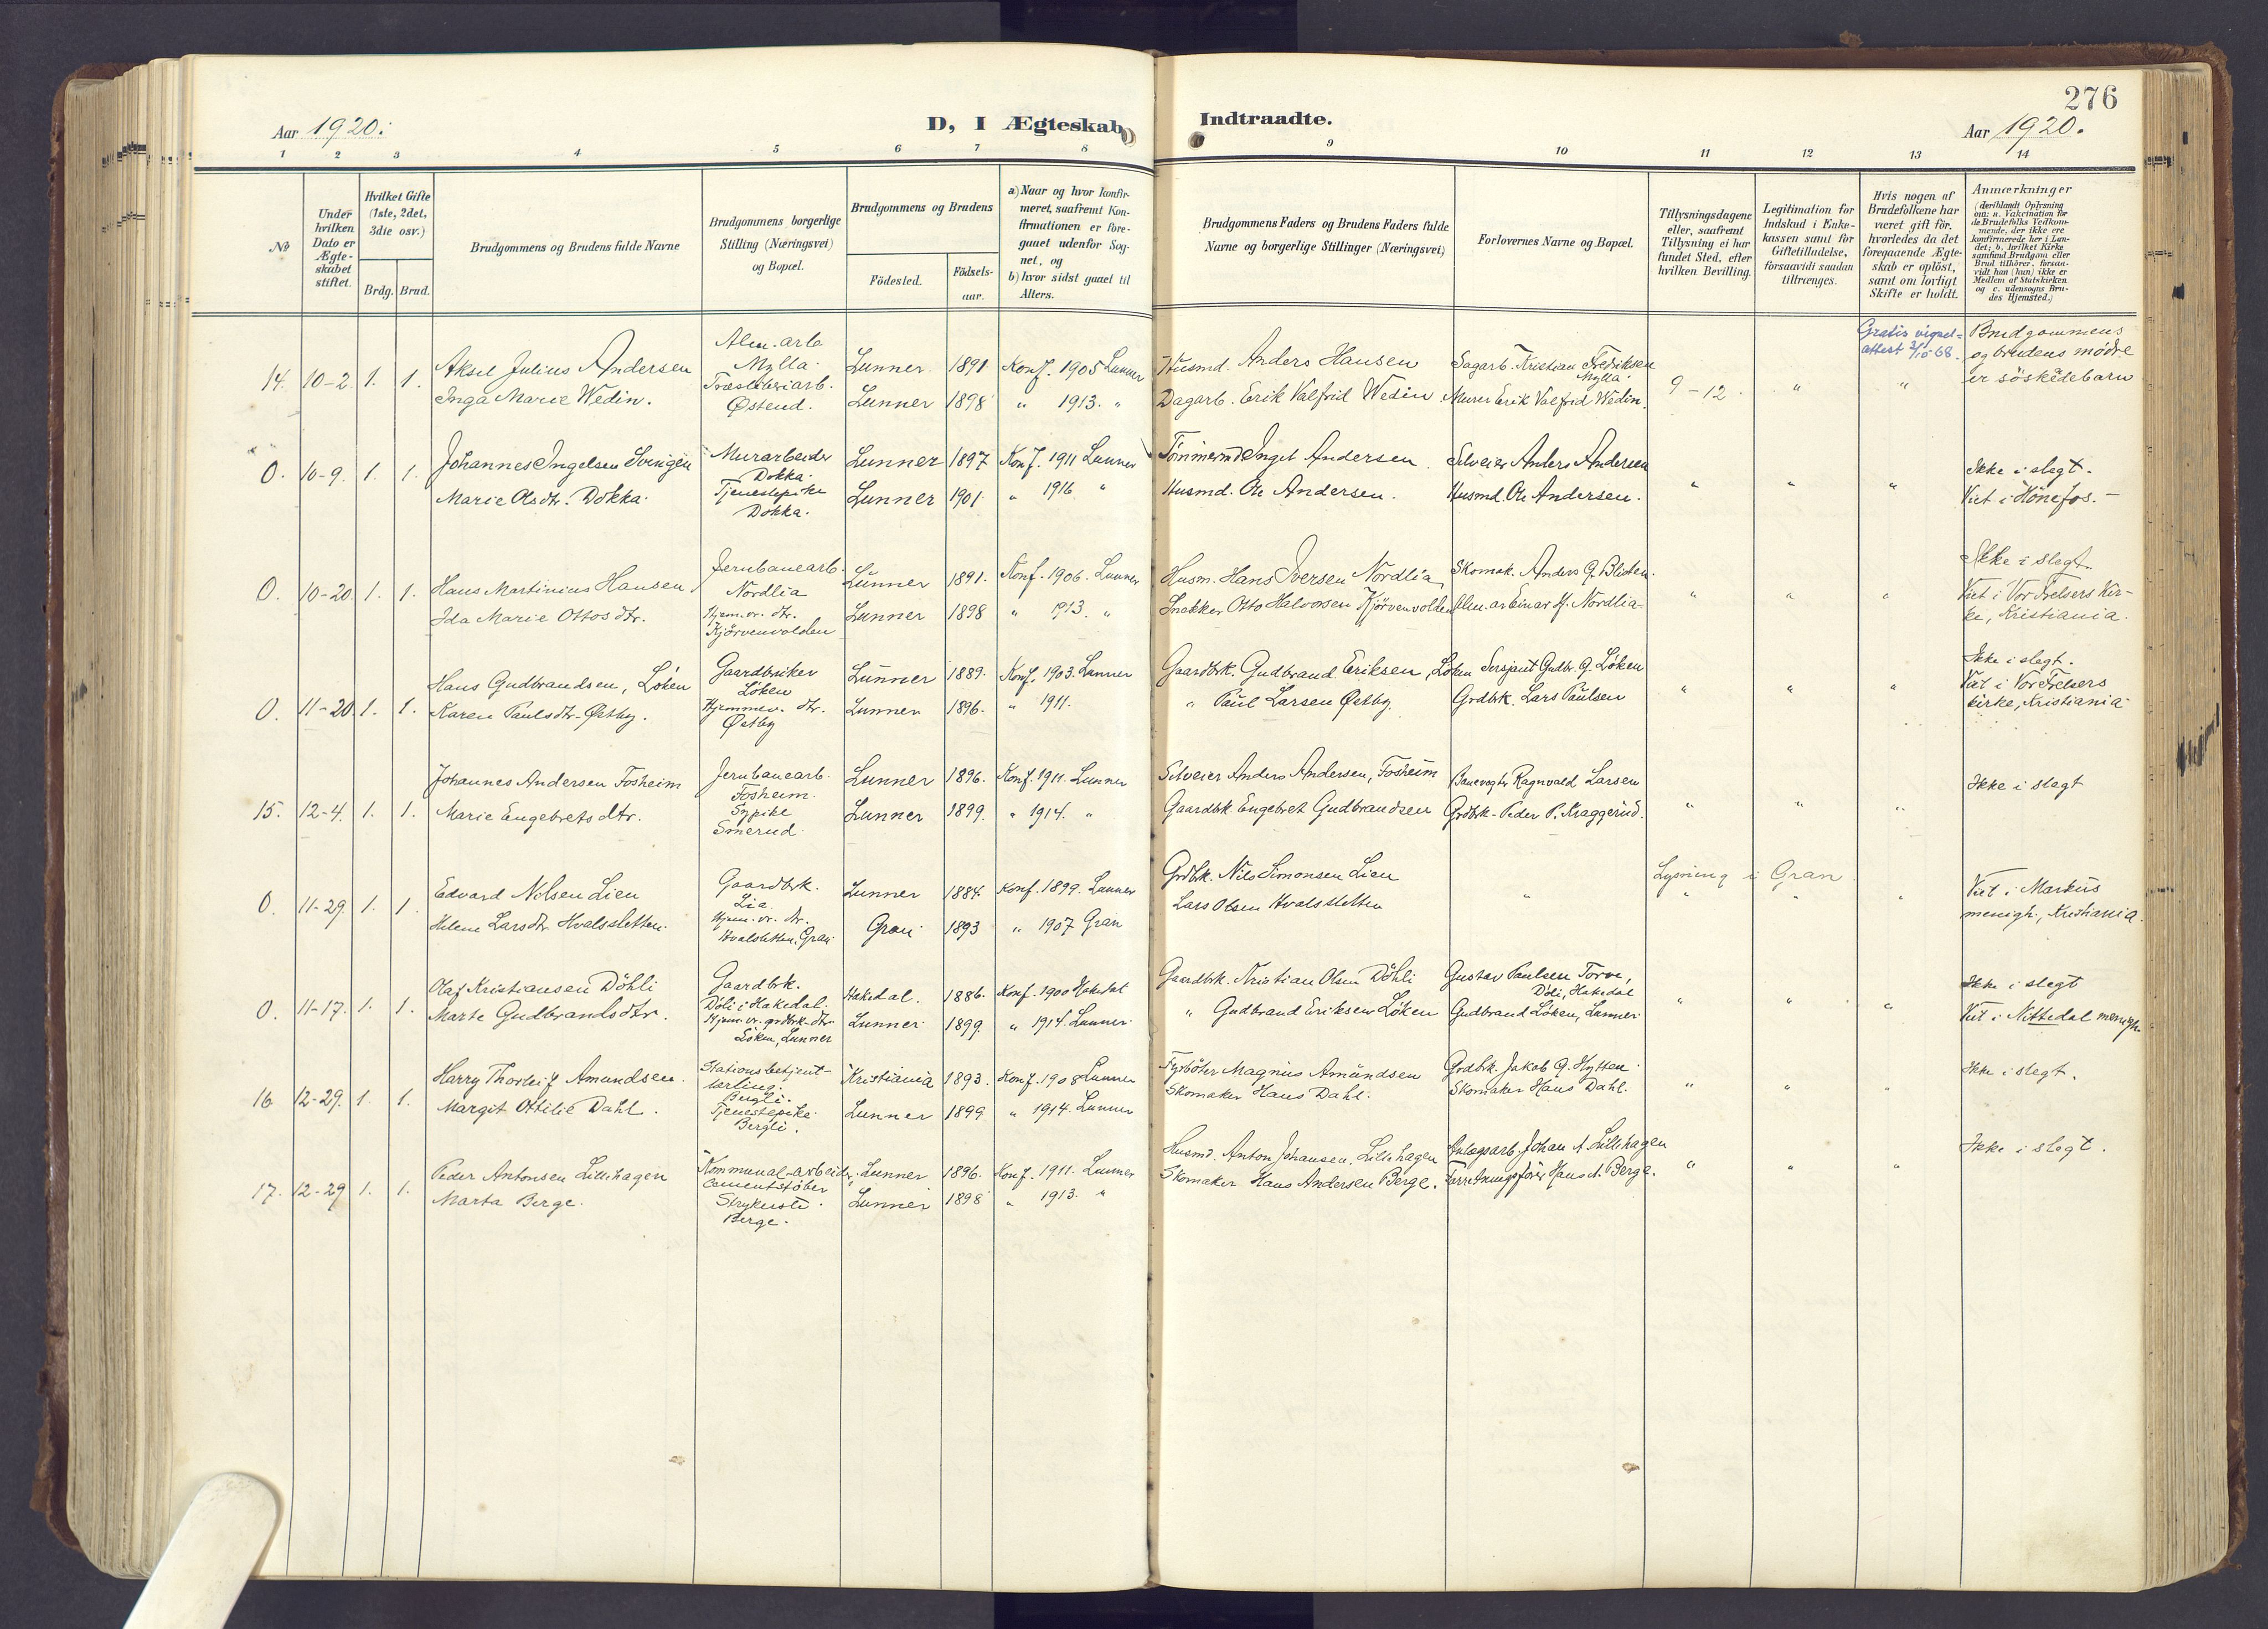 276
Aar 1920.
D, I Ægteskab
Indtraadte.
Aar 1920.
1 2 3 4 5 6 7 8 9 10 11 12 13 14
№
Under hvilken Dato er Ægteskabet stiftet.
Hvilket Gifte (1ste, 2det, 3die osv.)
Brdg. Brud.
Brudgommens og Brudens fulde Navne
Brudgommens borgerlige Stilling (Næringsvei) og Bopæl.
Brudgommens og Brudens
Födested.
Födselsaar.
a) Naar og hvor konfirmeret, saafremt Konfirmationen er foregaaet udenfor Sognet, og
b) hvor sidst gaaet til Alters.
Brudgommens Faders og Brudens Faders fulde Navne og borgerlige Stillinger (Næringsvei)
Forlovernes Navne og Bopæl.
Tillysningsdagene eller, saafremt Tillysning ei har fundet Sted, efter hvilken Bevilling.
Legitimation for Indskud i Enkekassen samt for Giftetilladelse, forsaavidt saadan tiltrænges.
Hvis nogen af Brudefolkene har været gift för, hvorledes da det foregaaende Ægteskab er oplöst, samt om lovligt Skifte er holdt.
Anmærkninger
(deriblandt Oplysning om: a. Vakcination for de Brudefolks Vedkommende, der ikke ere konfirmerede her i Landet; b. hvilket Kirkesamfund Brudgom eller Brud tilhörer, forsaavidt han (hun) ikke er Medlem af Statskirken og c. udensogns Brudes Hjemsted.)
14. 10-2 1. 1. Aksel Julius Andersen Alm. arb Mylla. Lunner 1891 Konf. 1905 Lunner Husmd. Anders Hansen Sagarb. Kristian Fredriksen Mylla. 9-12. " "
Inga Marie Wedin. Træsliberiarb. Østend. Lunner 1898 " 1913. " Dagarb. Erik Valfrid Wedin Murer Erik Valfrid Wedin.
Gratis vigselattest 3/10-68.
Brudgommens og brudens mødre er söskedebarn
0. 10-9. 1. 1. Johannes Ingelsen Svingen Murarbeider Dokka. Lunner 1897 Konf. 1911 Lunner Tömmermd Ingel Andersen. Selveier Anders Andersen
Marie Olsdtr. Dokka. Tjenestepike Dokka. Lunner 1901. " 1916 " Husmd. Ole Andersen. Husmd. Ole Andersen. " " "
Ikke i slegt.
Viet i Hönefos.-
0. 10-20. 1. 1. Hans Martinius Hansen Jernbanearb. Nordlia Lunner 1891. Konf. 1906. Lunner Husm. Hans Iversen Nordlia Skomak. Anders G. Blisten.
Ida Marie Ottosdtr. Hjem.vr. dtr. Kjörvenvolden Lunner 1898 " 1913. " Snekker Otto Halvorsen Kjörvenvolden Alm. ar Einar H. Nordlia " " "
Ikke i slegt.
Viet i Vor Frelsers Kirke, Kristiania.
0. 11-20 1. 1. Hans Gudbrandsen, Löken Gaardbruker Löken Lunner 1889. Konf. 1903. Lunner Gaardbrk. Gudbrand Eriksen, Löken Sersjant Gudbr. G. Löken
Karen Paulsdtr. Østby. Hjemmev. dtr. Østby Lunner 1896. " 1911. " Paul Larsen Østby Grdbrk. Lars Paulsen " " "
Ikke i slegt.
Viet i Vor Frelsers kirke, Kristiania
15. 12-4. 1. 1. Johannes Andersen Fosheim Jernbanearb. Fosheim. Lunner 1896. Konf. 1911. Lunner Selveier Anders Andersen, Fosheim Banevogter Ragnvald Larsen
Marie Engebretsdtr. Sypike Smerud. Lunner 1899. " 1914. " Gaardbrk Engebret Gudbrandsen Grdbrk. Peder P. Kraggerud. " " "
Ikke i slegt
0. 11-29. 1. 1. Edvard Nilsen Lien Gaardbrk. Lia Lunner 1884. Konf. 1899. Lunner Grdbrk. Nils Simonsen Lien " Lysning i Gran
Helene Larsdtr Hvalsletten. Hjem.vr. dtr. Hvalsletten, Gran Gran 1893 " 1907 Gran Lars Olsen Hvalsletten " " "
Viet i Markus menigh., Kristiania.
0. 11-17. 1. 1. Olaf Kristiansen Döhli Gaardbrk. Döli i Hakedal. Hakedal. 1886. Konf. 1900 Hakedal Gaardbrk. Kristian Olsen Döhli Gustav Paulsen Torve, Döli, Hakedal
Marte Gudbrandsdtr. Hjem.vr. grdbrk-dtr. Löken, Lunner Lunner 1899. " 1914. Lunner. " Gudbrand Eriksen Löken Gudbrand Löken, Lunner " " "
Ikke i slegt
Viet i Nittedal menigh.
16 12-29. 1. 1. Harry Thorleif Amundsen. Stationsbetjentlærling. Bergli. Kristiania 1893. Konf. 1908 Lunner Fyrböter Magnus Amundsen Grdbrk. Jakob G. Hytten.
Margit Ottilie Dahl. Tjenestepike. Bergli. Lunner 1899 " 1914. Lunner Skomaker Hans Dahl. Skomaker Hans Dahl. " " "
Ikke i slegt.
17. 12-29 1. 1. Peder Antonsen Lillehagen Kommunal-arbeider, cementstøber Lunner 1896. Konf. 1911. Lunner Husmd. Anton Johansen, Lillehagen Anlægsarb. Johan A. Lillehagen
Marta Berge. Strykerste. Berge. Lunner 1898 " 1913. " Skomaker Hans Andersen Berge. Forretningsförer Hans A. Berge. " " "
Ikke i slegt.